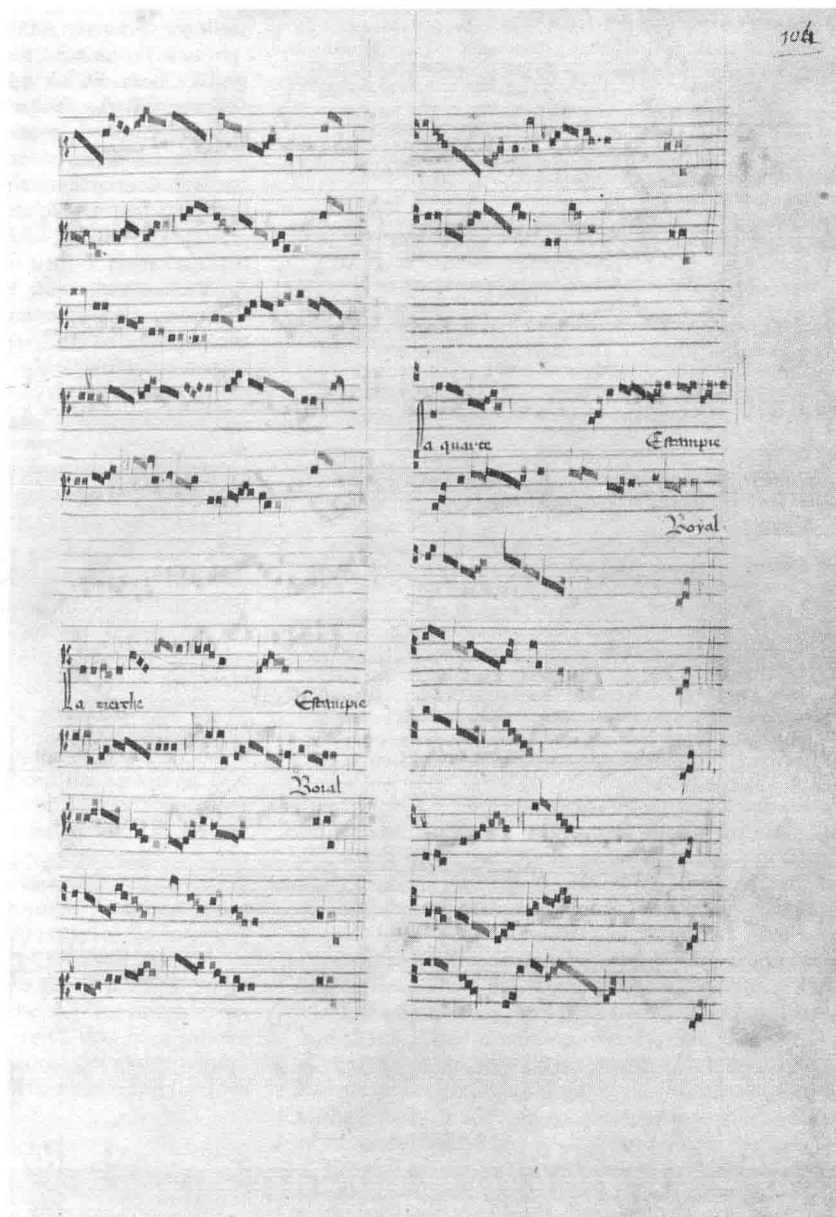 104
La tierche Estampie
Roial
La quarte Estampie
Royal